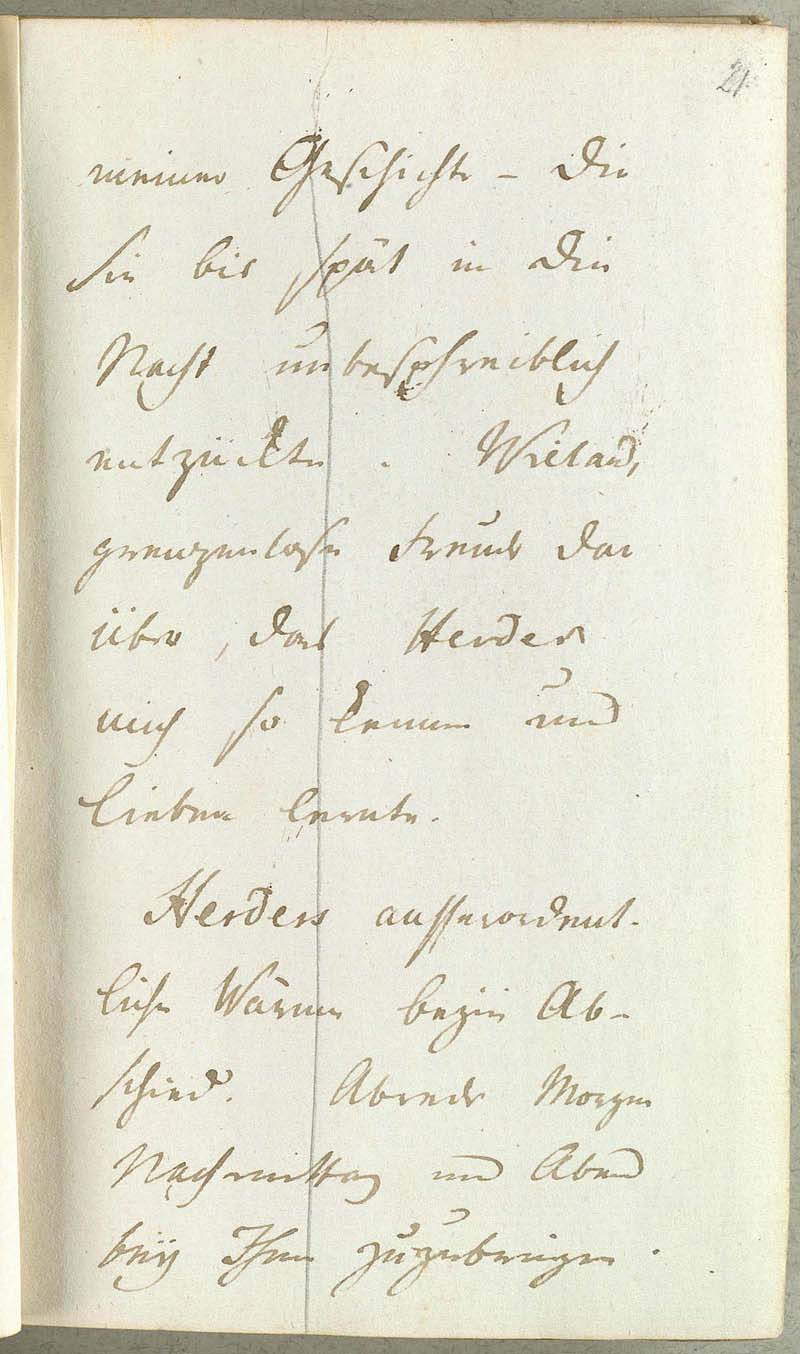 21
meiner Geschichte – die
Sie bis spät in die
Nacht unbeschreiblich
entzückte. Wielands
grenzenlose Freude dar
über, das Herder
mich so kennen und
lieben lernte.
Herders aufserordent-
liche Wärme beym Ab-
schied. Abrede Morgen
Nachmittag und Abend
bey Ihm zuzubringen.